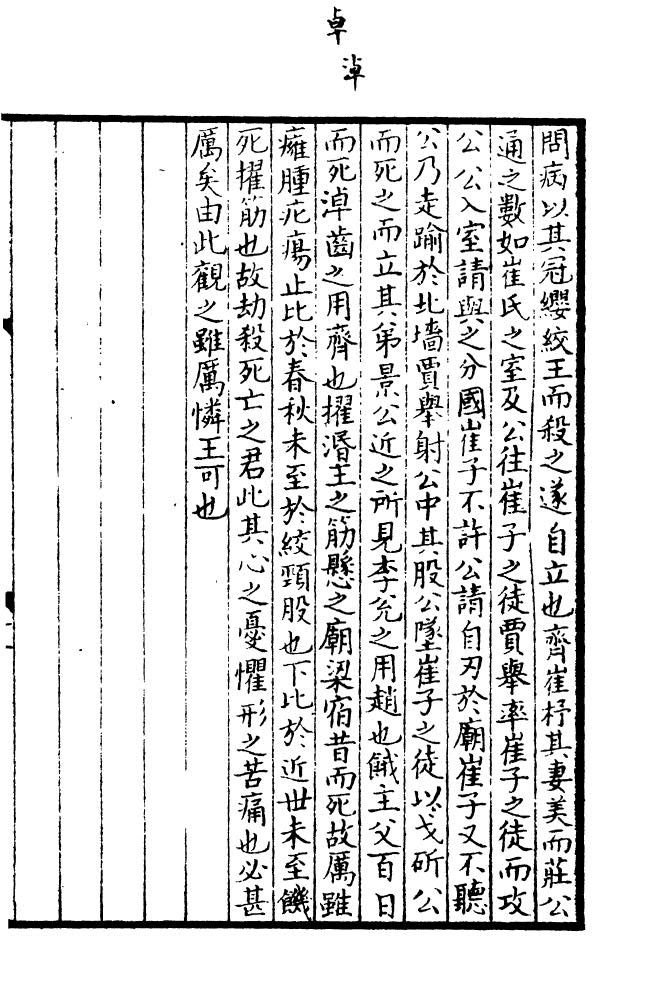 卓
淖
問病以其冠纓絞王而殺之遂自立也齊崔杼其妻美而莊公
通之數如崔氏之室及公往崔子之徒賈舉率崔子之徒而攻
公公入室請與之分國崔子不許公請自刃於廟崔子又不聽
公乃走踰於北墻賈舉射公中其股公墜崔子之徒以戈斫公
而死之而立其弟景公近之所見李兊之用趙也餓主父百日
而死淖齒之用齊也擢湣王之筋懸之廟梁宿昔而死故厲雖
癰腫疕瘍止比於春秋未至於絞頸股也下比於近世未至饑
死擢筋也故劫殺死亡之君此其心之憂懼形之苦痛也必甚
厲矣由此觀之雖厲憐王可也